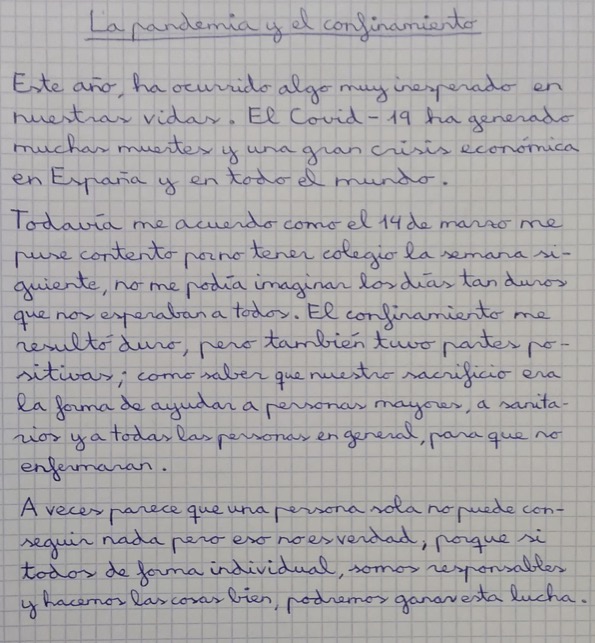 La pandemia y el confinamiento
Este año, ha ocurrido algo muy inesperado en
nuestras vidas. El Covid-19 ha generado
muchas muertes y una gran crisis económica
en España y en todo el mundo.
Todavía me acuerdo como el 14 de marzo me
puse contento por no tener colegio la semana si-
guiente, no me podía imaginar los días tan duros
que nos esperaban a todos. El confinamiento me
resultó duro, pero también tuvo partes po-
sitivas; como saber que nuestro sacrificio era
la forma de ayudar a personas mayores, a sanita-
rios y a todas las personas en general, para que no
enfermaran.
A veces parece que una persona sola no puede con-
seguir nada pero eso no es verdad; porque si
todos de forma individual, somos responsables
y hacemos las cosas bien, podremos ganar esta lucha.